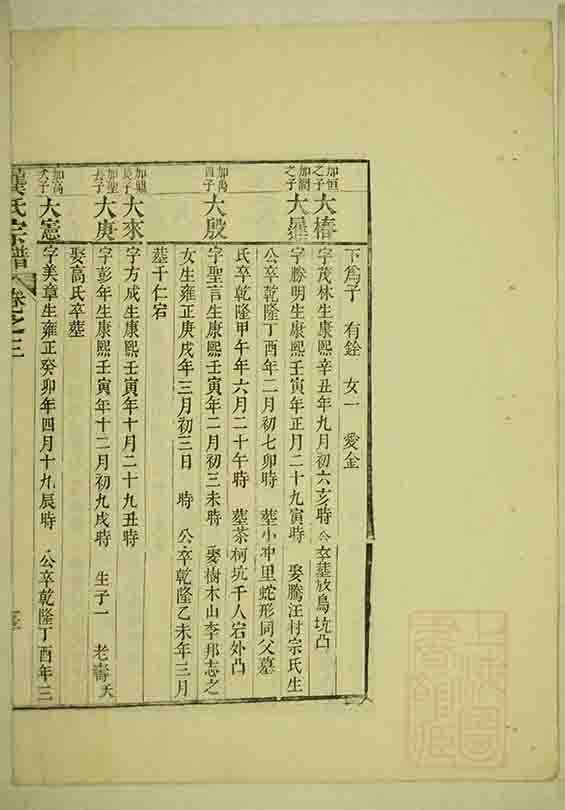 下爲子 有銓 女一 愛金
加恒之子 大椿 字茂林生康熙辛丑年九月初六亥時 公卒墓放鳥坑凸
之子 大羅 字勝明生康熙壬寅年正月二十九寅時 娶騰汪村宗氏生
公卒乾隆丁酉年二月初七卯時 墓小冲里蛇形同父墓
氏卒乾隆甲午年六月二十午時 墓茶柯坑千人宕外凸
大殷 字聖言生康熙壬寅年二月初三未時 娶樹木山李邦志之
女生雍正庚戌年三月初三日 時 公卒乾隆乙未年三月
墓千仁宕
長子 大來 字方成生康熙壬寅年十月二十九丑時
加聖長子 大庚 字彭年生康熙壬寅年十二月初九戌時 生子一 老壽夭
娶高氏卒墓
加高 大憲 字美章生雍正癸卯年四月十九辰時 公卒乾隆丁酉年三
氏宗譜 卷之三